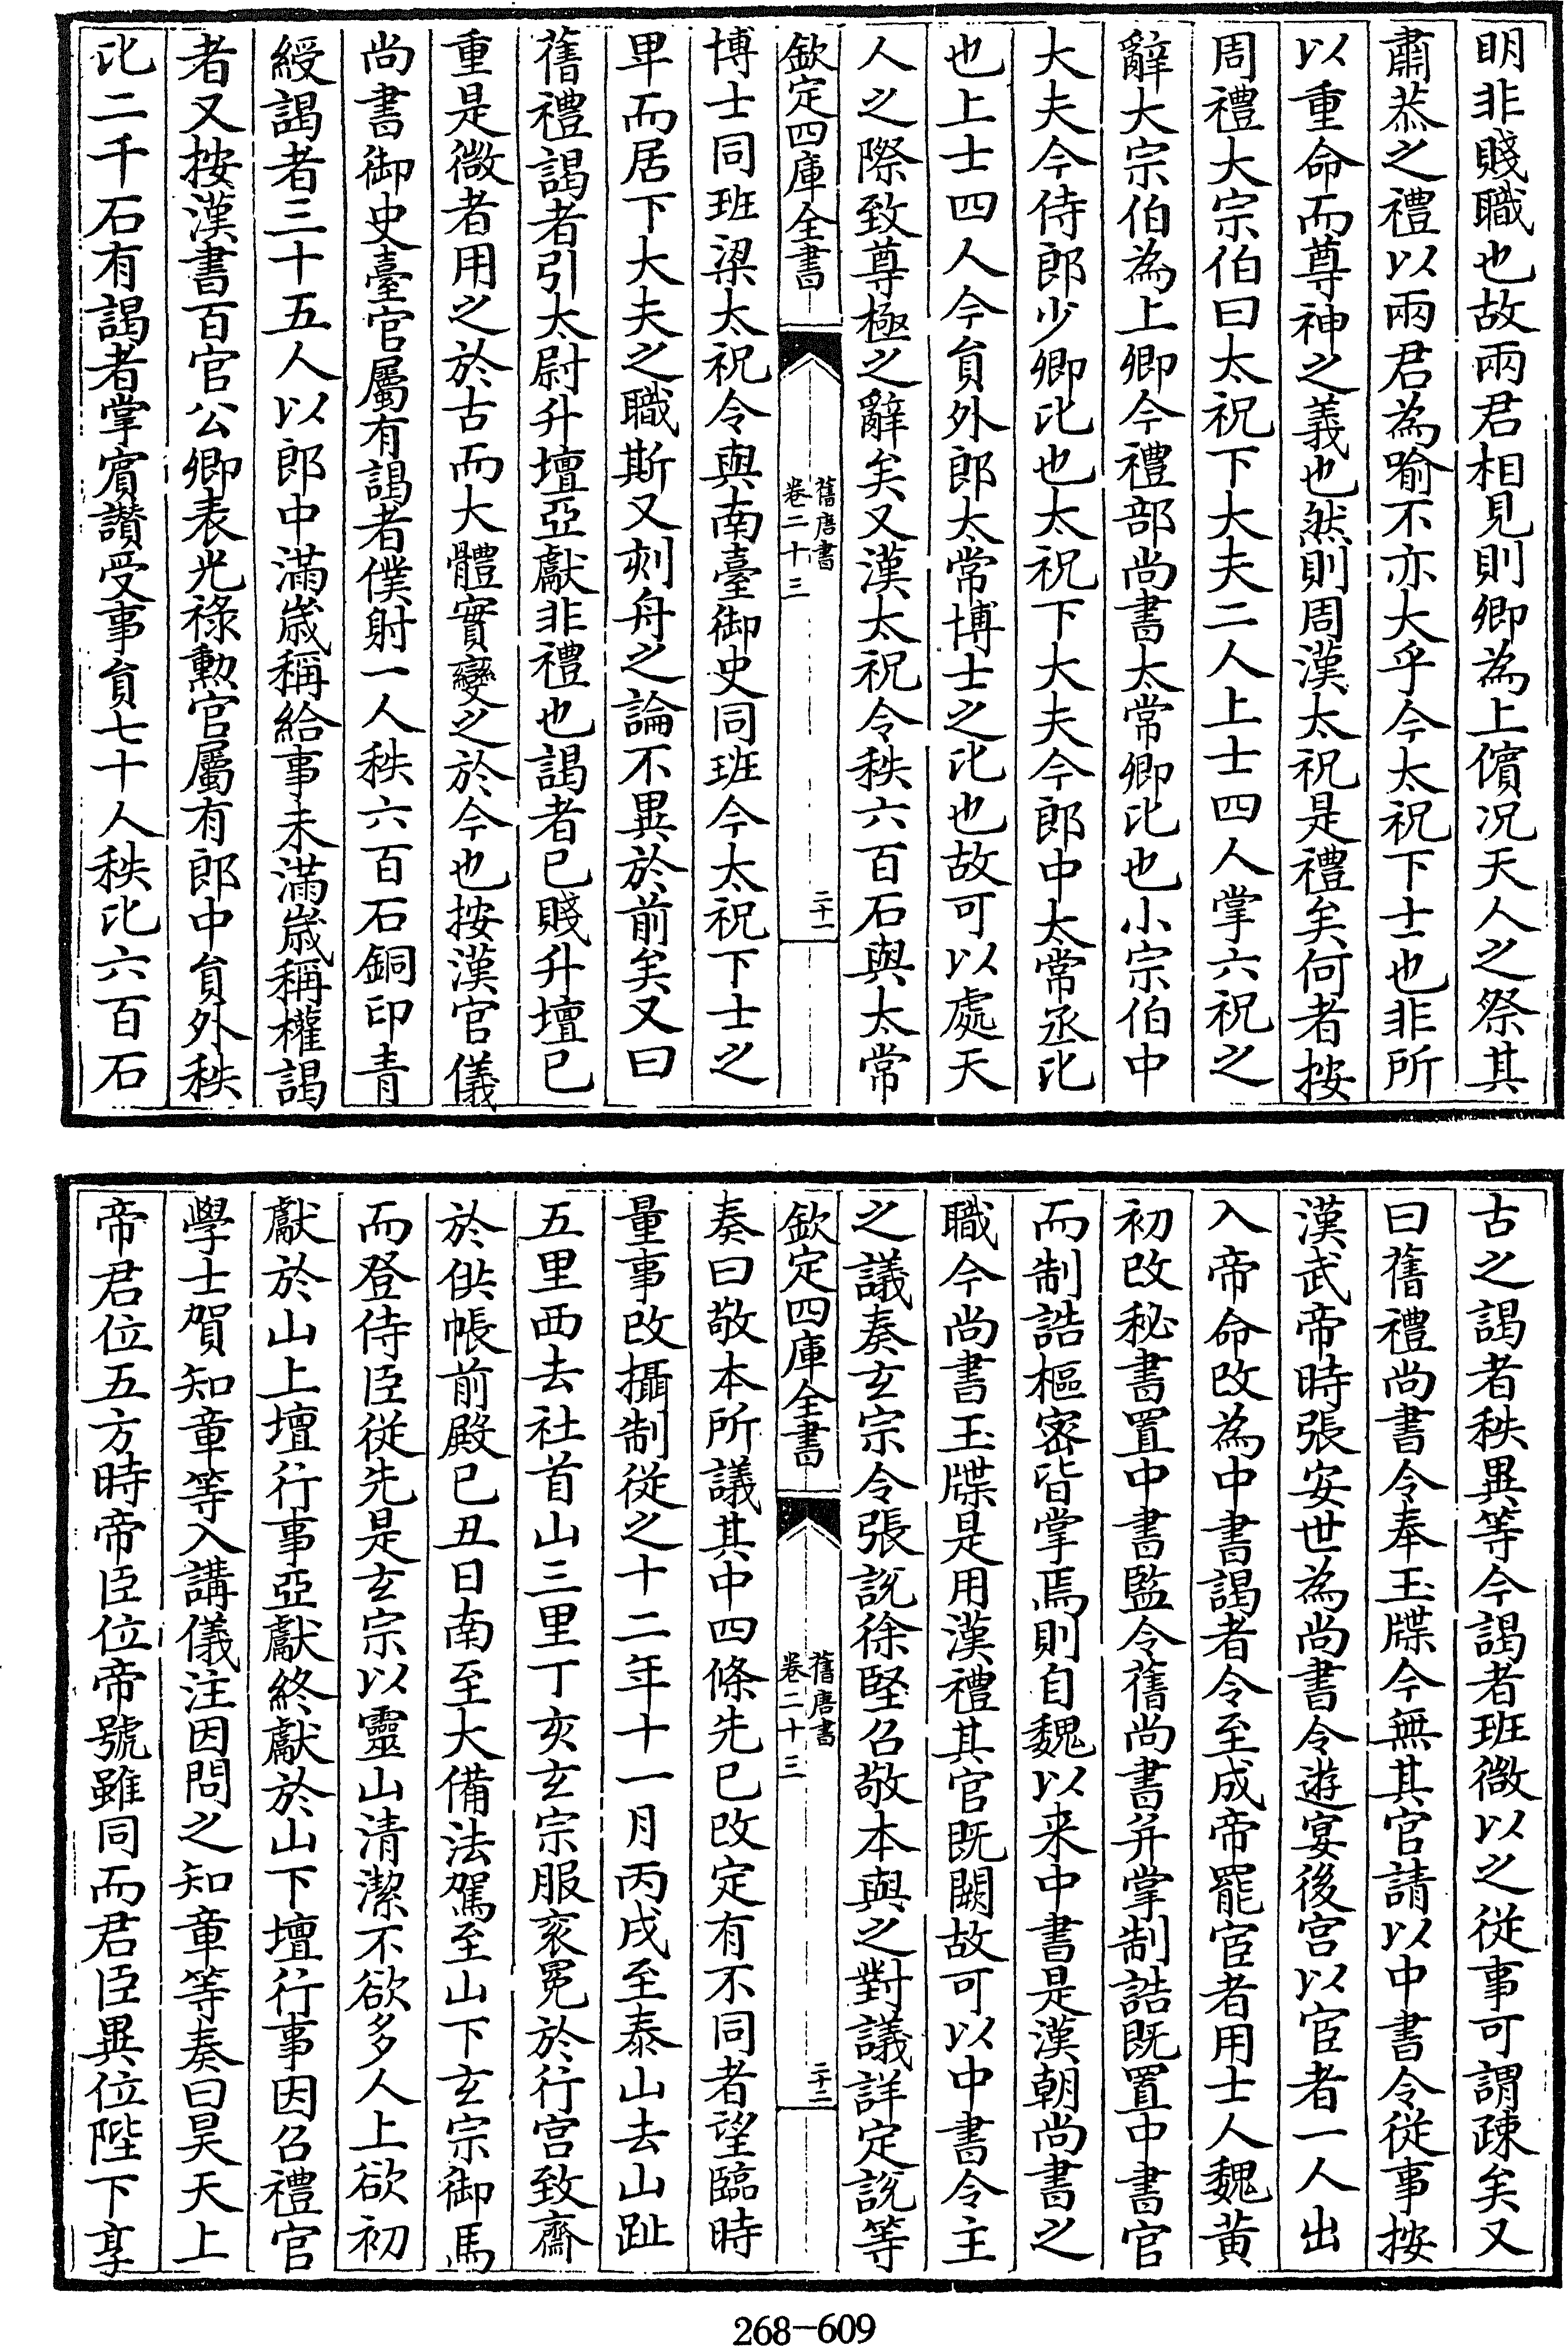 明非賤職也故兩君相見則卿為上儐况天人之祭其
肅恭之禮以兩君為喻不亦大乎今太祝下士也非所
以重命而尊神之義也然則周漢太祝是禮矣何者按
周禮大宗伯曰太祝下大夫二人上士四人掌六祝之
辭大宗伯為上卿今禮部尚書太常卿比也小宗伯中
大夫今侍郎少卿比也太祝下大夫今郎中太常丞比
也上士四人今貟外郎太常博士之比也故可以處天
人之際致尊極之辭矣又漢太祝令秩六百石與太常
欽定四庫全書
舊唐書
卷二十三
二十一
博士同班梁太祝令與南臺御史同班今太祝下士之
卑而居下大夫之職斯又刻舟之論不異於前矣又曰
舊禮謁者引太尉升壇亞獻非禮也謁者已賤升壇已
重是微者用之於古而大體實變之於今也按漢官儀
尚書御史臺官屬有謁者僕射一人秩六百石銅印青
綬謁者三十五人以郎中滿歲稱給事未滿歲稱權謁
者又按漢書百官公卿表光祿勲官屬有郎中貟外秩
比二千石有謁者掌賓讚受事貟七十人秩比六百石
古之謁者秩異等今謁者班微以之從事可謂疎矣又
曰舊禮尚書令奉玉牒今無其官請以中書令從事按
漢武帝時張安世為尚書令遊宴後宫以宦者一人出
入帝命改為中書謁者令至成帝罷宦者用士人魏黃
初改秘書置中書監令舊尚書并掌制誥既置中書官
而制誥樞密皆掌焉則自魏以来中書是漢朝尚書之
職今尚書玉牒是用漢禮其官既闕故可以中書令主
之議奏玄宗令張說徐堅召敬本與之對議詳定說等
欽定四庫全書
舊唐書
卷二十三
二十二
奏曰敬本所議其中四條先已改定有不同者望臨時
量事改攝制從之十二年十一月丙戌至泰山去山趾
五里西去社首山三里丁亥玄宗服衮冕於行宫致齋
於供帳前殿已丑日南至大備法駕至山下玄宗御馬
而登侍臣從先是玄宗以靈山清潔不欲多人上欲初
獻於山上壇行事亞獻終獻於山下壇行事因召禮官
學士賀知章等入講儀注因問之知章等奏曰昊天上
帝君位五方時帝臣位帝號雖同而君臣異位陛下享
268-609